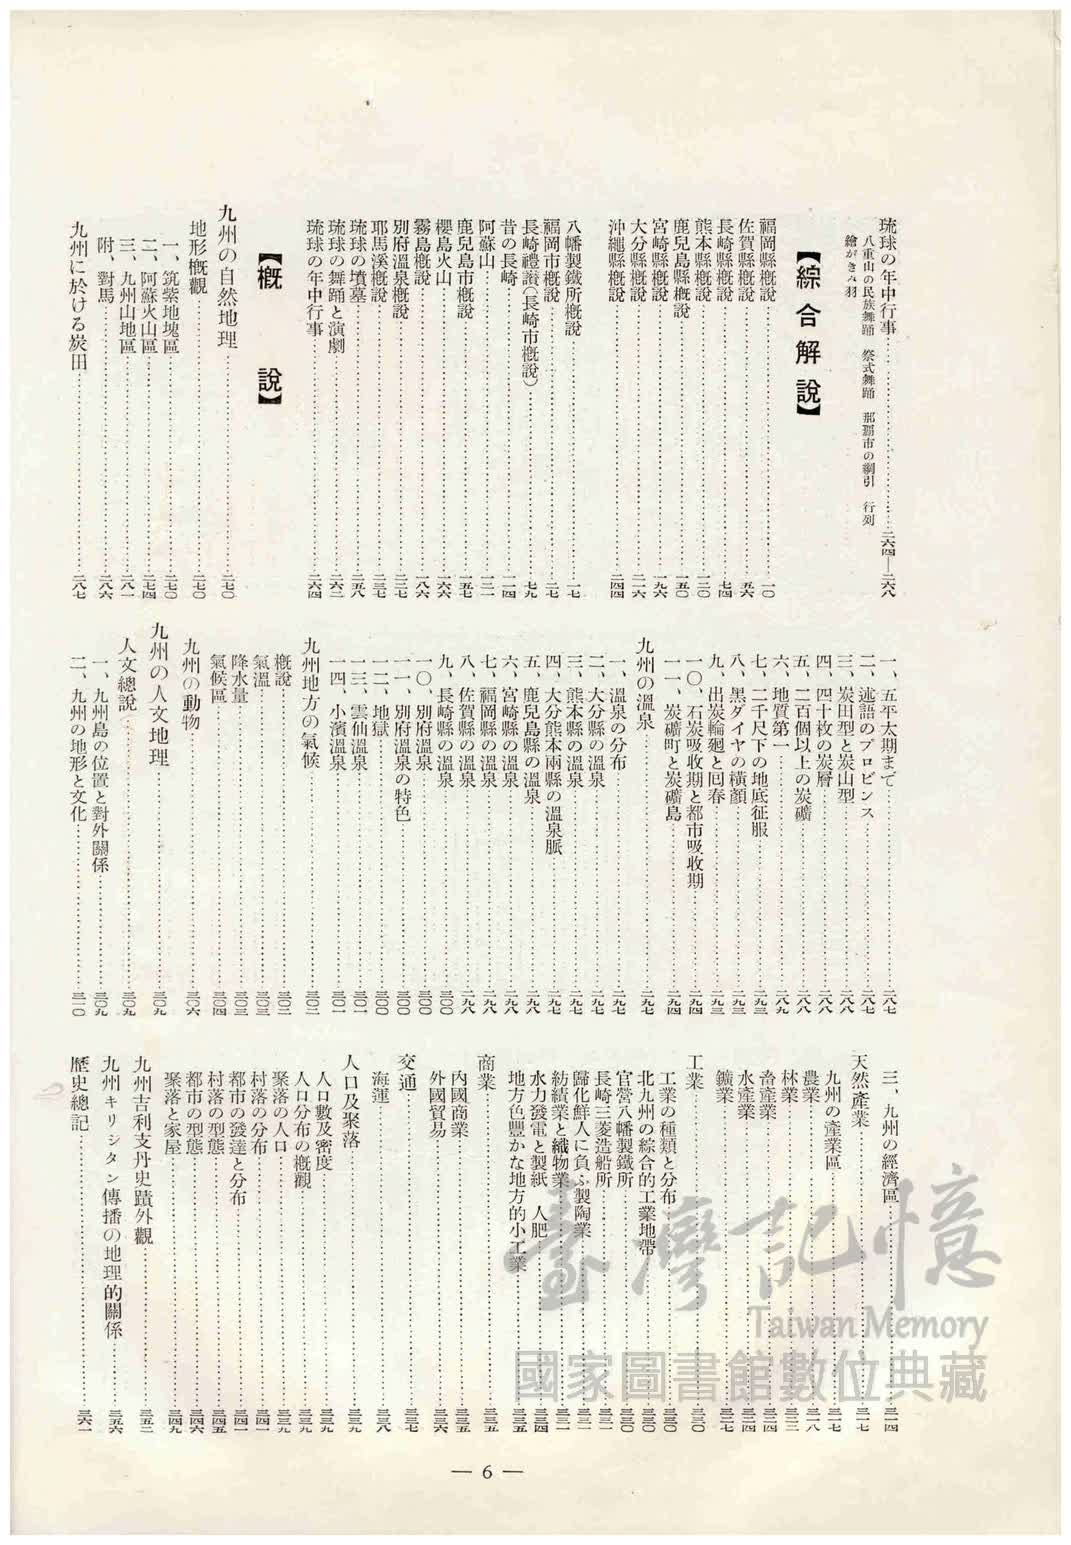 琉球の年中行事……二六四—二六八
八重山の民族舞踊　祭式舞踊　那覇市の綱引　行列
繪がき羽
【綜合解說】
福岡縣槪說……一〇
佐賀縣槪說……五六
長崎縣槪說……七四
熊本縣槪說……一二〇
鹿兒島縣槪說……一五〇
宮崎縣槪說……一九六
大分縣槪說……二一六
沖繩縣槪說……二四四
八幡製鐵所槪說……一七
福岡市槪說……二七
長崎禮讃(長崎市槪說)……七九
昔の長崎……一一四
阿蘇山……一三一
鹿兒島市槪說……一五七
櫻島火山……一六六
霧島槪說……一八六
別府溫泉槪說……二二七
耶馬溪槪說……二三七
琉球の墳墓……二五八
琉球の舞踊と演劇……二六二
琉球の年中行事……二六四
【槪說】
九州の自然地理……二七〇
地形槪觀……二七〇
一、筑紫地塊區……二七〇
二、阿蘇火山區……二七四
三、九州山地區……二八一
附、對馬……二八六
九州に於ける炭田……二八七
一、五平太期まで……二八七
二、述語のプロビンス……二八七
三、炭田型と炭山型……二八八
四、四十枚の炭層……二八八
五、二百個以上の炭礦……二八八
六、地質第一……二八九
七、二千尺下の地底征服……二九三
八、黑ダイヤの橫顏……二九三
九、出炭輪廻と囘春……二九三
一〇、石炭吸收期と都市吸收期……二九四
一一、炭礦町と炭礦島……二九四
九州の溫泉……二九七
一、溫泉の分布……二九七
二、大分縣の溫泉……二九八
三、熊本縣の溫泉……二九七
四、大分熊本兩縣の溫泉脈……二九七
五、鹿兒島縣の溫泉……二九七
六、宮崎縣の溫泉……二九八
七、福岡縣の溫泉……二九八
八、佐賀縣の溫泉……二九八
九、長崎縣の溫泉……三〇〇
一〇、別府溫泉……三〇〇
一一、別府溫泉の特色……三〇〇
一二、地獄……三〇〇
一三、雲仙溫泉……三〇一
一四、小濱溫泉……三〇一
九州地方の氣候……三〇二
槪說……三〇二
氣溫……三〇三
降水量……三〇三
氣候區……三〇四
九州の動物……三〇六
九州の人文地理……三〇九
人文總說……三〇九
一、九州島の位置と對外關係……三〇九
二、九州の地形と文化……三一〇
三、九州の經濟區……三一四
天然產業……三一七
九州の產業區……三一七
農業……三一八
林業……三二二
畜產業……三二四
水產業……三二四
鑛業……三二七
工業……三三〇
工業の種類と分布……三三〇
北九州の綜合的工業地帶……三三〇
官營八幡製鐵所……三三〇
長崎三菱造船所……三三一
歸化鮮人に負ふ製陶業……三三一
紡績業と織物業……三三一
水力發電と製紙　人肥……三三四
地方色豐かな地方的小工業……三三五
商業……三三五
內國商業……三三五
外國貿易……三三六
交通……三三七
海運……三三八
人口及聚落……三三九
人口數及密度……三三九
人口分布の槪觀……三三九
聚落の人口……三三九
村落の分布……三四一
都市の發達と分布……三四一
村落の型態……三四五
都市の型態……三四六
聚落と家屋……三四九
九州吉利支丹史蹟外觀……三五二
九州キリシタン傳播の地理的關係……三五六
歷史總記……三六一
— 6 —
臺灣記憶
Taiwan Memory
國家圖書館數位典藏